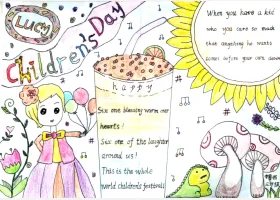 LUCY
Children's Day
happy
Six one blessing warm our
hearts!
Six one of the laughter
around us!
This is the whole
world children's festival!
When you have a kid
who you care so much
that anything he want
comes before your own